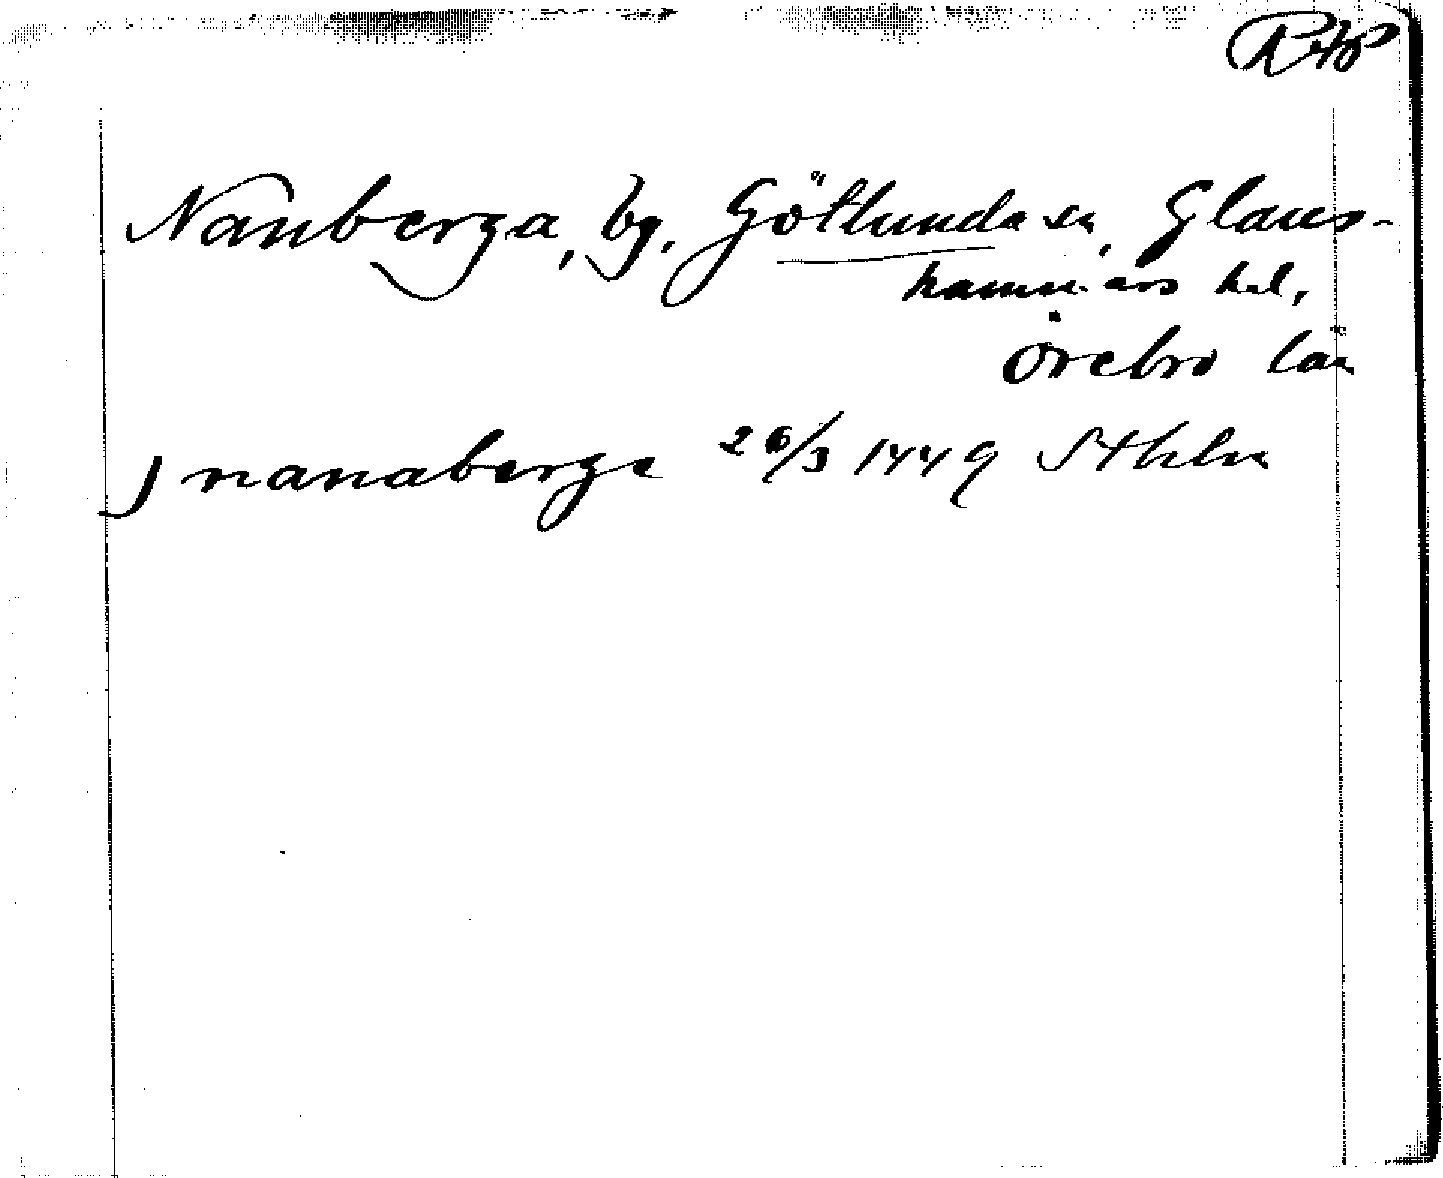 RAp
Nanberga, by, Götlunda sn, Glans-
hammars hd,
Örebro län
J nanaberge 26/3 1449 Sthlm